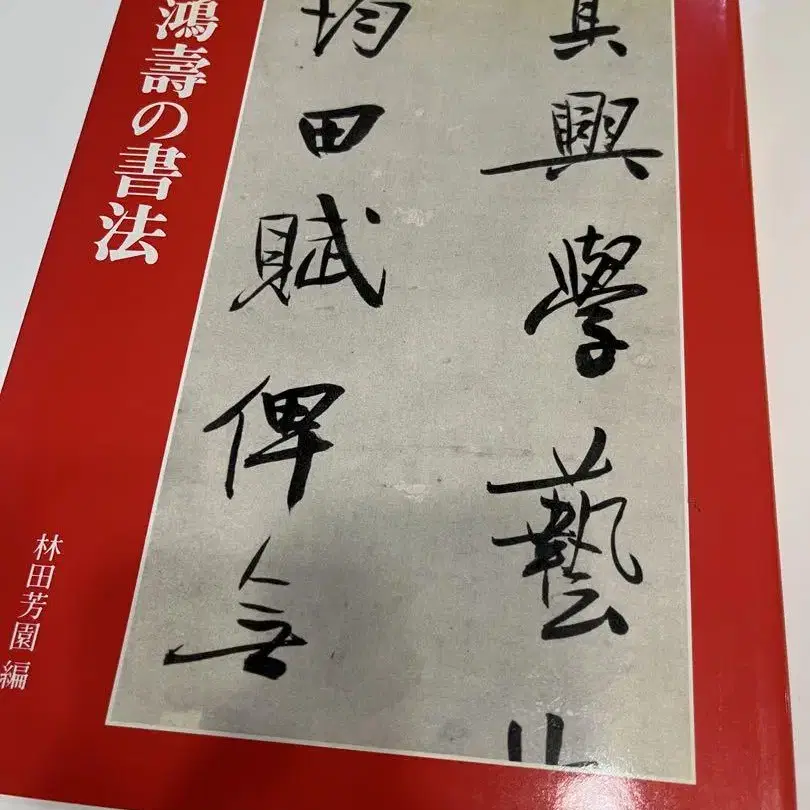 鴻壽の書法
林田芳園 編
興學藝
均田賦俾無